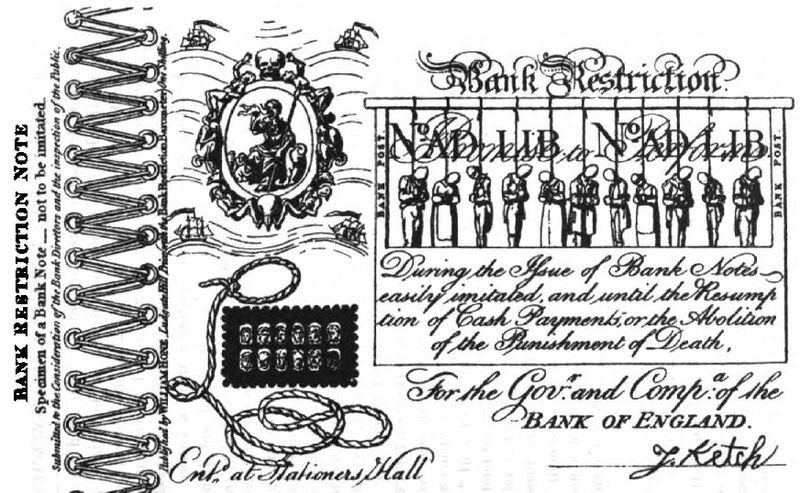 BANK RESTRICTION NOTE
Specimen of a Bank Note — not to be imitated.
Submitted to the Consideration of the Bank Directors and the inspection of the Public.
Published by WILLIAM HONE Ludgate Hill
Bank Restriction.
BANK POST.
No AD LIB No AD LIB
Promise to Perform
BANK POST.
During the Issue of Bank Notes
easily imitated, and until the Resump
tion of Cash Payments, or the Abolition
of the Punishment of Death,
For the Govr. and Compa. of the
BANK OF ENGLAND.
J. Ketch
Entd. at Stationers Hall